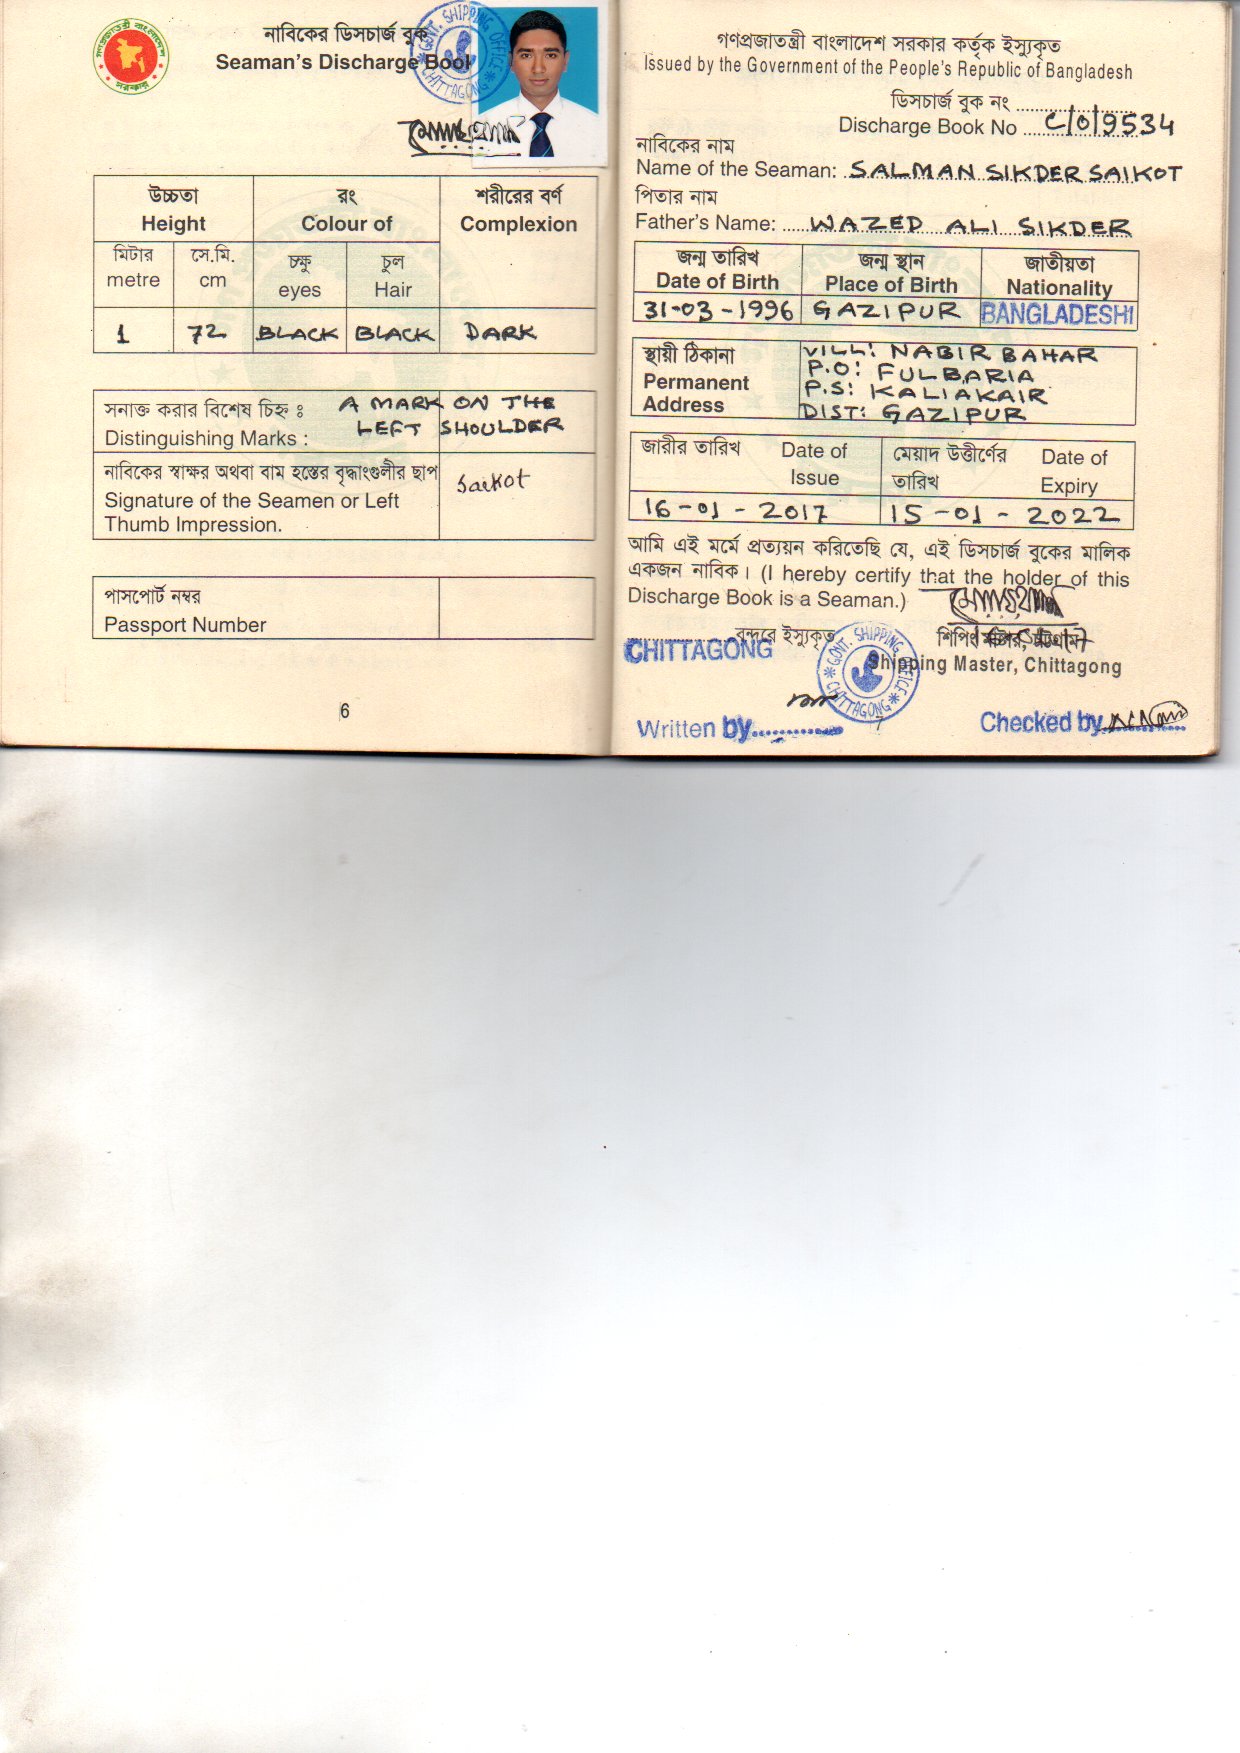 গণপ্রজাতন্ত্রী বাংলাদেশ
সরকার
নাবিকের ডিসচার্জ বুক
Seaman's Discharge Book
GOVT. SHIPPING OFFICE
CHITTAGONG
উচ্চতা রং শরীরের বর্ণ
Height Colour of Complexion
মিটার সে.মি. চক্ষু চুল
metre cm eyes Hair
1 72 BLACK BLACK DARK
সনাক্ত করার বিশেষ চিহ্ন ঃ A MARK ON THE
Distinguishing Marks : LEFT SHOULDER
নাবিকের স্বাক্ষর অথবা বাম হস্তের বৃদ্ধাংগুলীর ছাপ
Signature of the Seamen or Left Saikot
Thumb Impression.
পাসপোর্ট নম্বর
Passport Number
6
গণপ্রজাতন্ত্রী বাংলাদেশ সরকার কর্তৃক ইস্যুকৃত
Issued by the Government of the People's Republic of Bangladesh
ডিসচার্জ বুক নং ....................
Discharge Book No ... C/0/9534
নাবিকের নাম
Name of the Seaman: SALMAN SIKDER SAIKOT
পিতার নাম
Father's Name: ..... WAZED ALI SIKDER
জন্ম তারিখ জন্ম স্থান জাতীয়তা
Date of Birth Place of Birth Nationality
31-03-1996 GAZIPUR BANGLADESHI
স্থায়ী ঠিকানা VILL: NABIR BAHAR
Permanent P.O: FULBARIA
Address P.S: KALIAKAIR
DIST: GAZIPUR
জারীর তারিখ Date of Issue মেয়াদ উত্তীর্ণের তারিখ Date of Expiry
16-01-2017 15-01-2022
আমি এই মর্মে প্রত্যয়ন করিতেছি যে, এই ডিসচার্জ বুকের মালিক
একজন নাবিক। (I hereby certify that the holder of this
Discharge Book is a Seaman.)
বন্দরে ইস্যুকৃত
CHITTAGONG
GOVT. SHIPPING OFFICE
CHITTAGONG
Shipping Master, Chittagong
Written by..............
Checked by